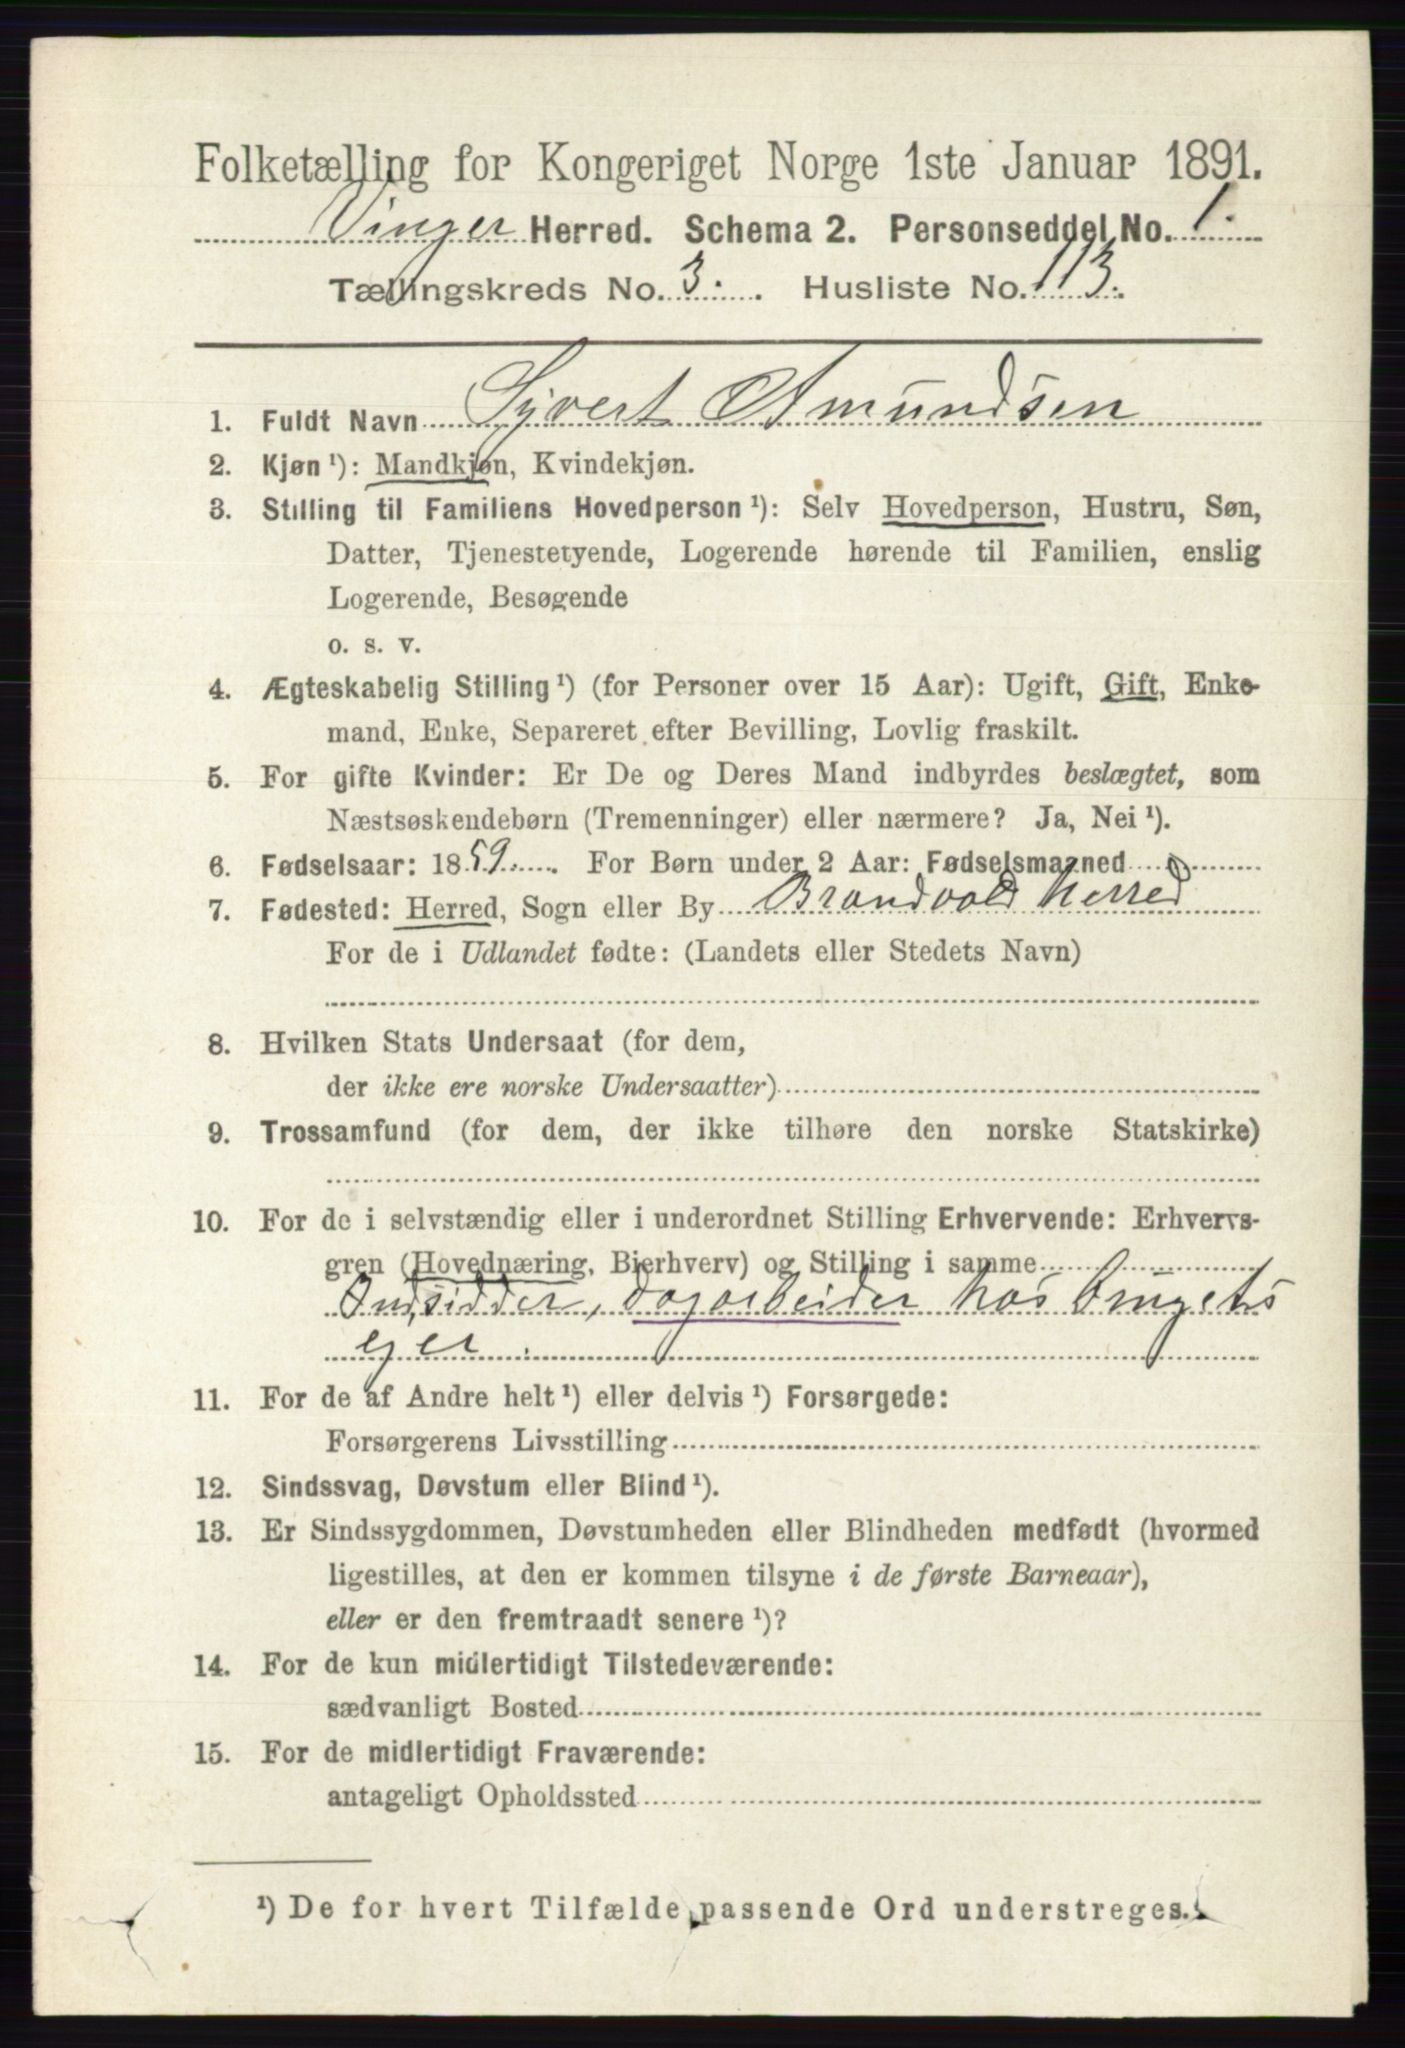 Folketælling for Kongeriget Norge 1ste Januar 1891.
Vinger Herred. Schema 2. Personseddel No. 1.
Tællingskreds No. 3. Husliste No. 113.
1. Fuldt Navn Syvert Amundsen
2. Kjøn ¹): Mandkjøn, Kvindekjøn.
3. Stilling til Familiens Hovedperson ¹): Selv Hovedperson, Hustru, Søn,
Datter, Tjenestetyende, Logerende hørende til Familien, enslig
Logerende, Besøgende
o. s. v.
4. Ægteskabelig Stilling ¹) (for Personer over 15 Aar): Ugift, Gift, Enke-
mand, Enke, Separeret efter Bevilling, Lovlig fraskilt.
5. For gifte Kvinder: Er De og Deres Mand indbyrdes beslægtet, som
Næstsøskendebørn (Tremenninger) eller nærmere? Ja, Nei ¹).
6. Fødselsaar: 1859. For Børn under 2 Aar: Fødselsmaaned
7. Fødested: Herred, Sogn eller By Brandvold Herred
For de i Udlandet fødte: (Landets eller Stedets Navn)
8. Hvilken Stats Undersaat (for dem,
der ikke ere norske Undersaatter)
9. Trossamfund (for dem, der ikke tilhøre den norske Statskirke)
10. For de i selvstændig eller i underordnet Stilling Erhvervende: Erhvervs-
gren (Hovednæring, Bierhverv) og Stilling i samme
Indsidder, dagarbeider hos brugets
ejer.
11. For de af Andre helt ¹) eller delvis ¹) Forsørgede:
Forsørgerens Livsstilling
12. Sindssvag, Døvstum eller Blind ¹).
13. Er Sindssygdommen, Døvstumheden eller Blindheden medfødt (hvormed
ligestilles, at den er kommen tilsyne i de første Barneaar),
eller er den fremtraadt senere ¹)?
14. For de kun midlertidigt Tilstedeværende:
sædvanligt Bosted
15. For de midlertidigt Fraværende:
antageligt Opholdssted
¹) De for hvert Tilfælde passende Ord understreges.